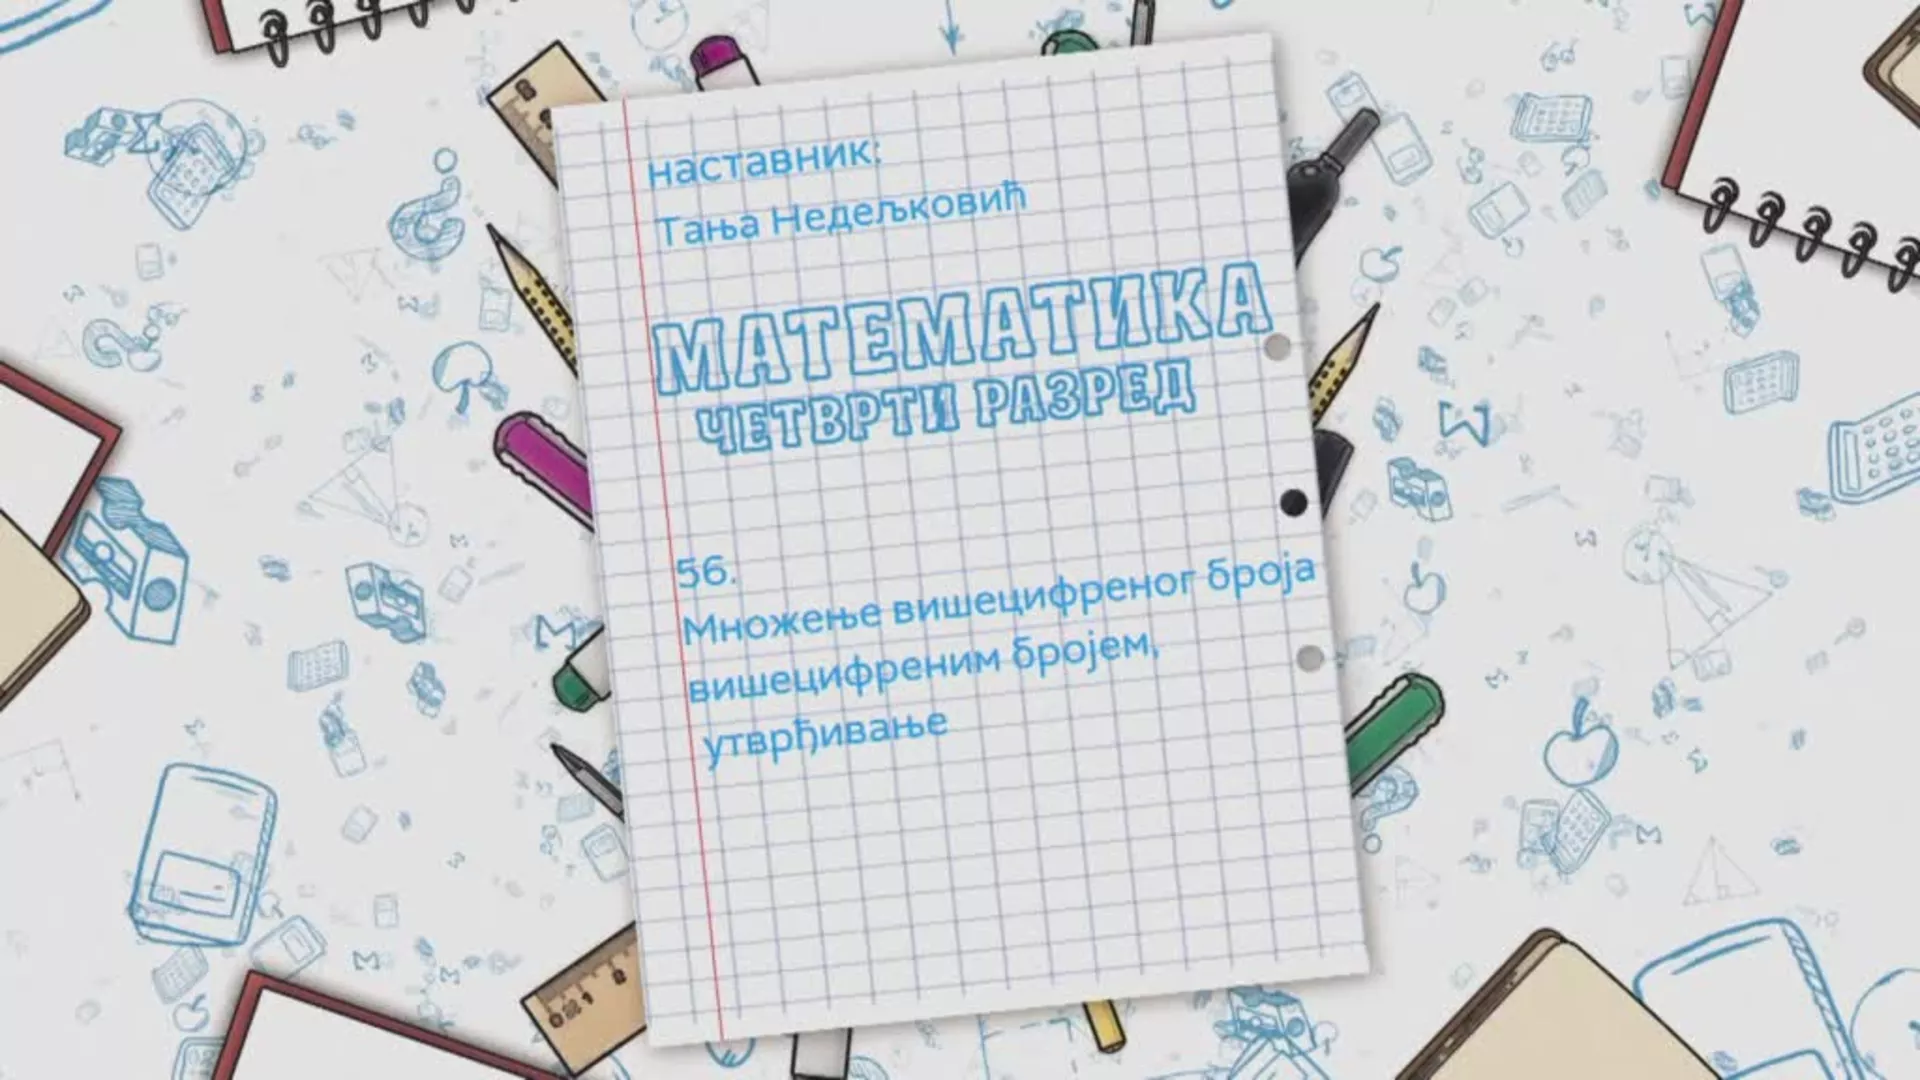 наставник:
Тања Недељковић
МАТЕМАТИКА
ЧЕТВРТИ РАЗРЕД
56.
Множење вишецифреног броја
вишецифреним бројем,
утврђивање